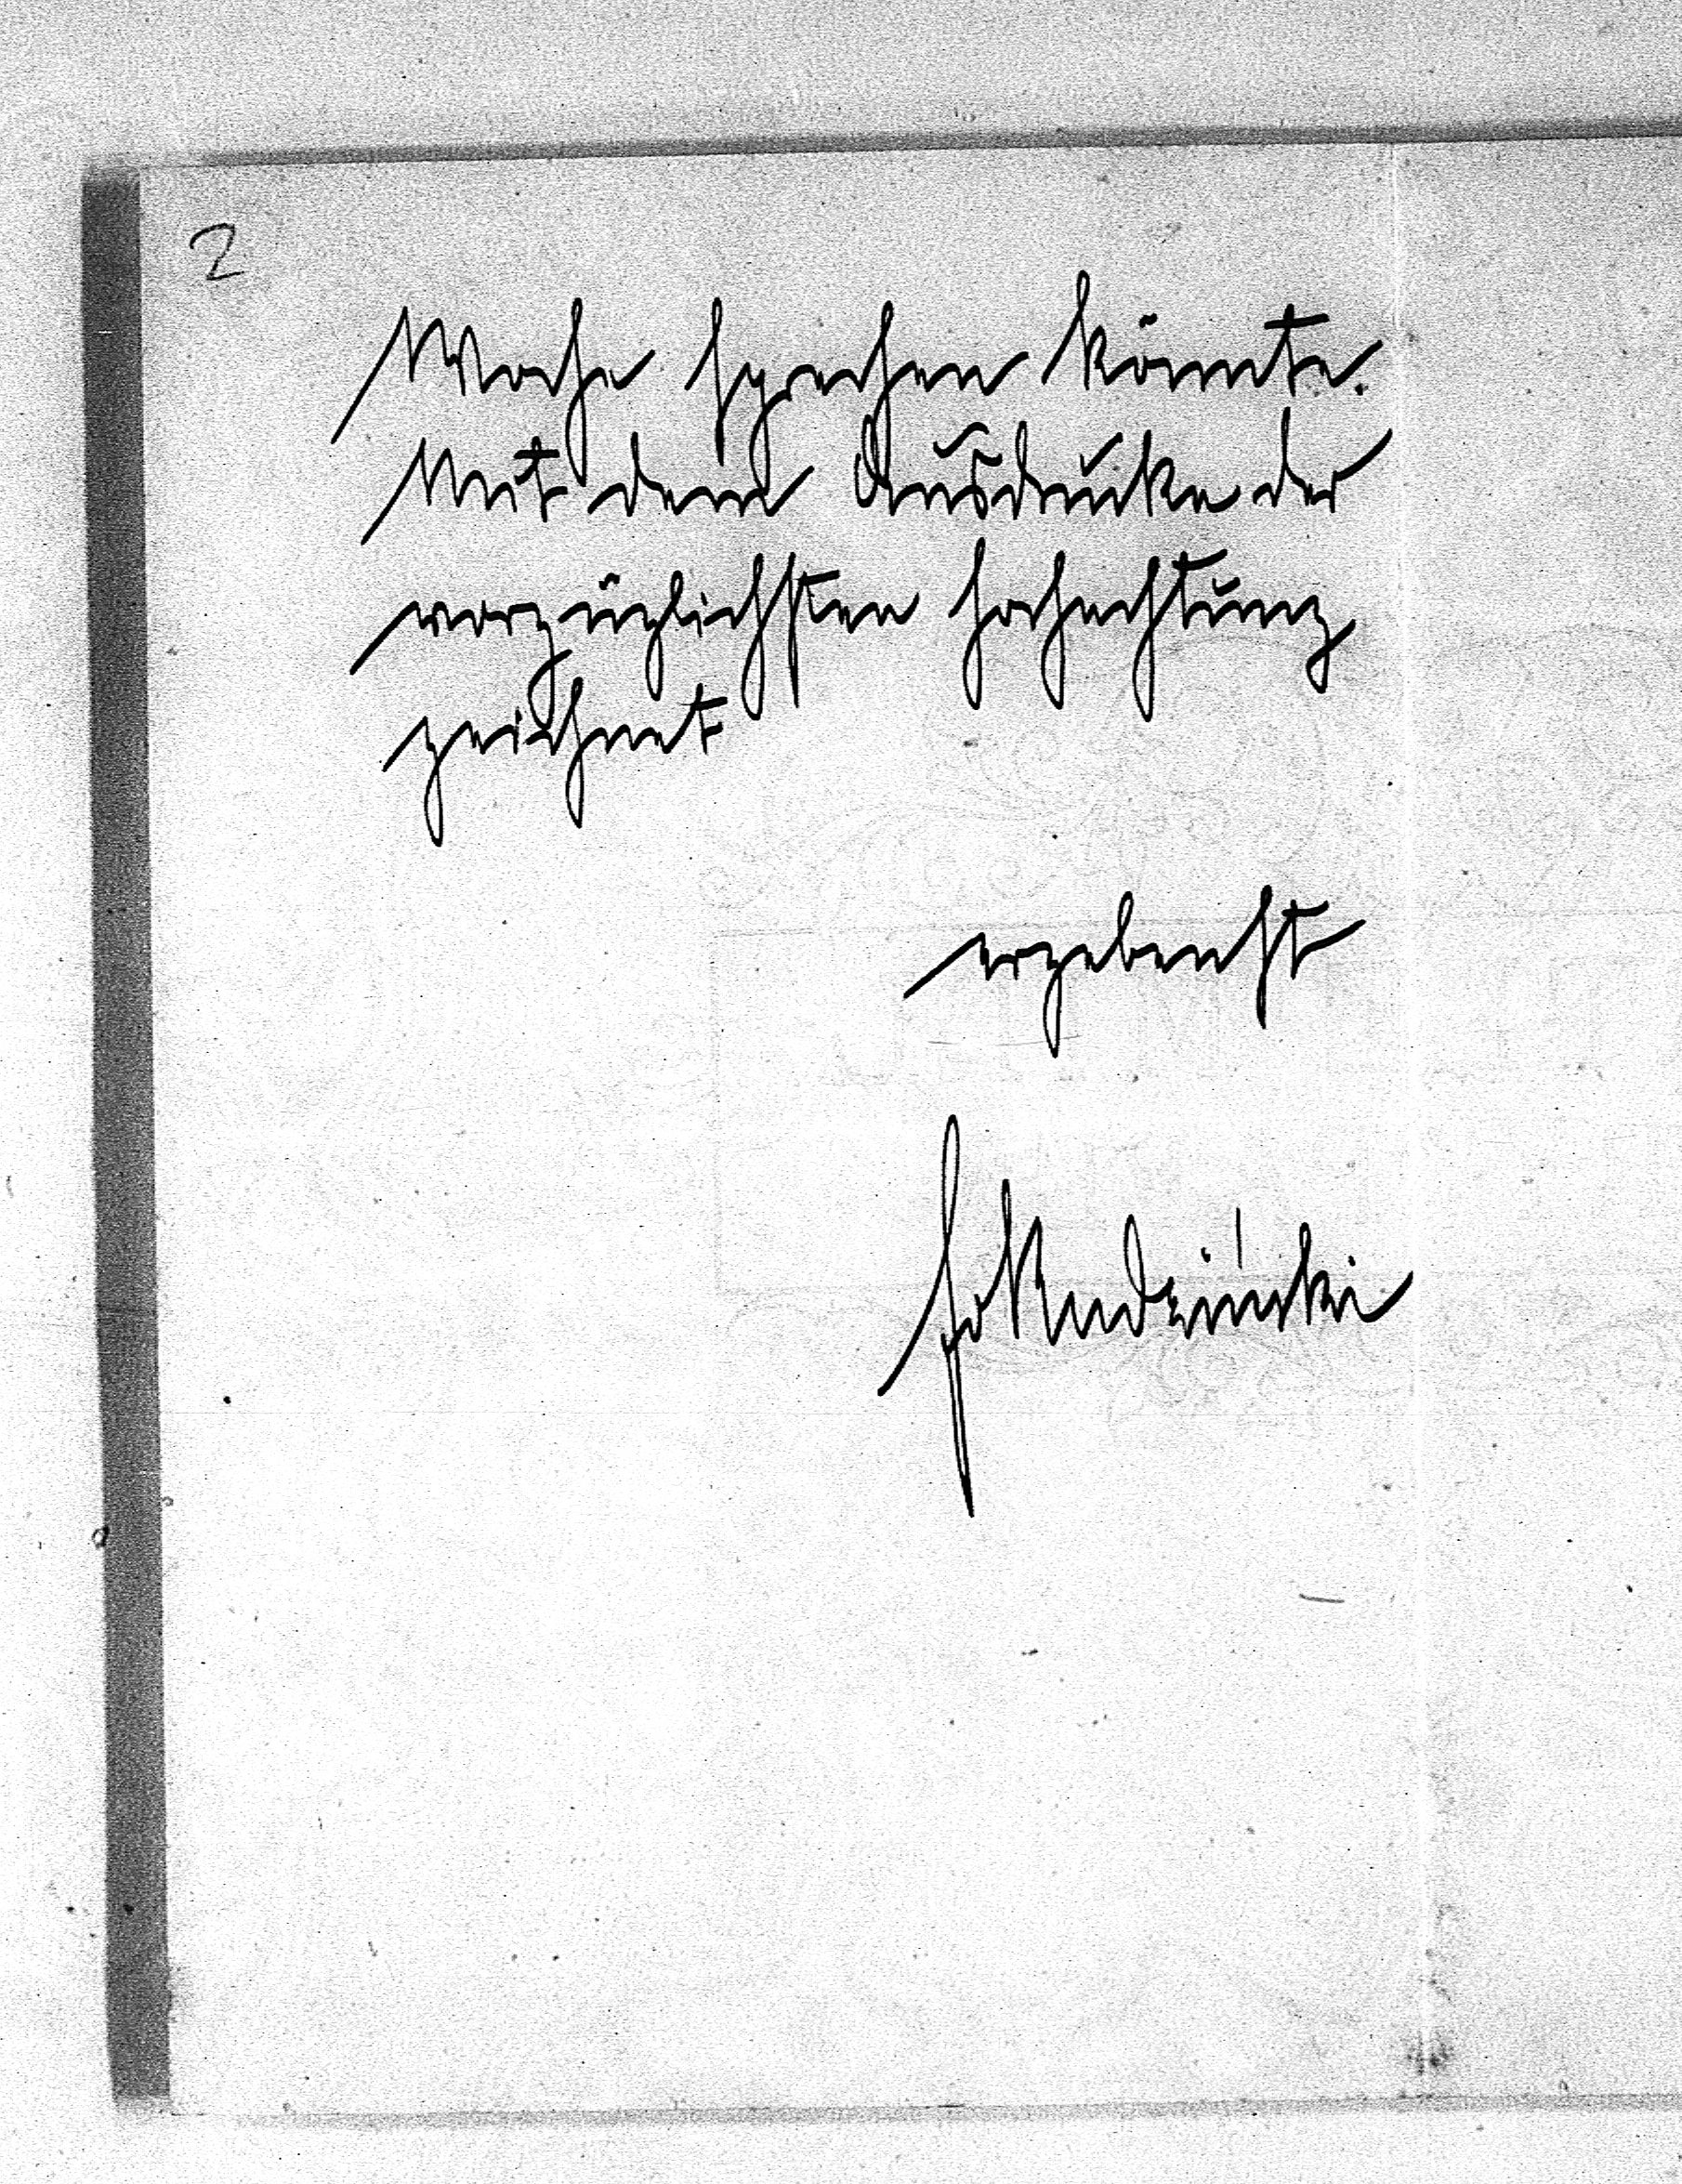 2
Woche sprechen könnte.
Mit dem Ausdrucke der
vorzüglichsten Hochachtung
zeichnet
ergebenst
Rudziński